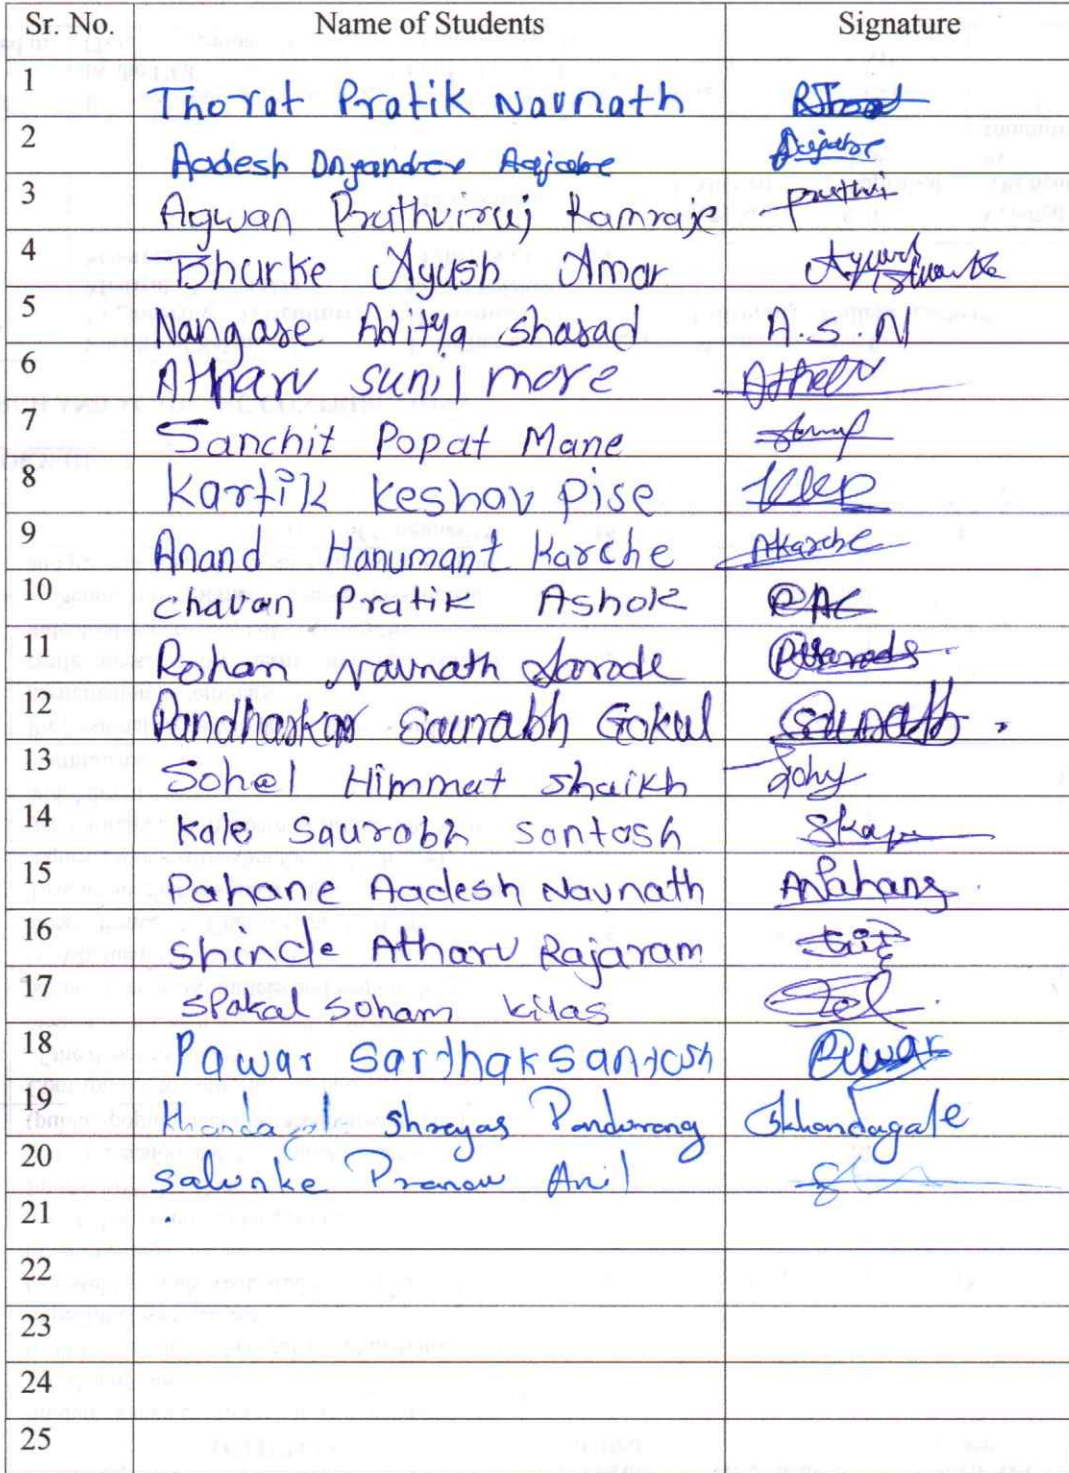 Sr. No. Name of Students Signature
1 Thorat Pratik Navnath
2 Aadesh Dnyandev Aajabe Aajabe
3 Agwan Pruthviruj Ramraje pruthvi
4 Bhurke Ayush Amar Ayush Bhurke
5 Nangare Aditya Sharad A.S.N
6 Atharv sunil more Atharv
7 Sanchit Popat Mane
8 Kartik Keshav Pise KKP
9 Anand Hanumant Karche AKarche
10 Chavan Pratik Ashok PAC
11 Rohan Navnath Sarade RSarade
12 Pandharkar Saurabh Gokul Saurabh
13 Sohel Himmat Shaikh
14 Kale Saurabh Santosh
15 Pahane Aadesh Navnath
16 Shinde Atharv Rajaram
17 Spakal Soham kilas
18 Pawar Sarthak Santosh Pawar
19 Shreyas Pandurang Skhandagale
20 Salunke Pranav Anil
21
22
23
24
25